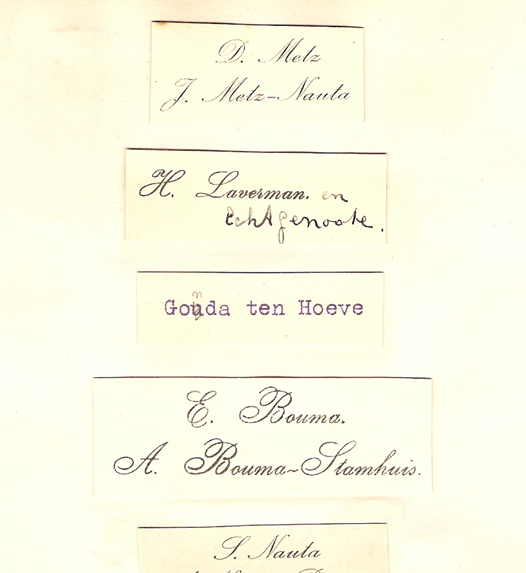 D. Metz
J. Metz-Nauta
H. Laverman. en
Echtgenoote.
Gonda ten Hoeve
E. Bouma.
A. Bouma-Stamhuis.
S. Nauta